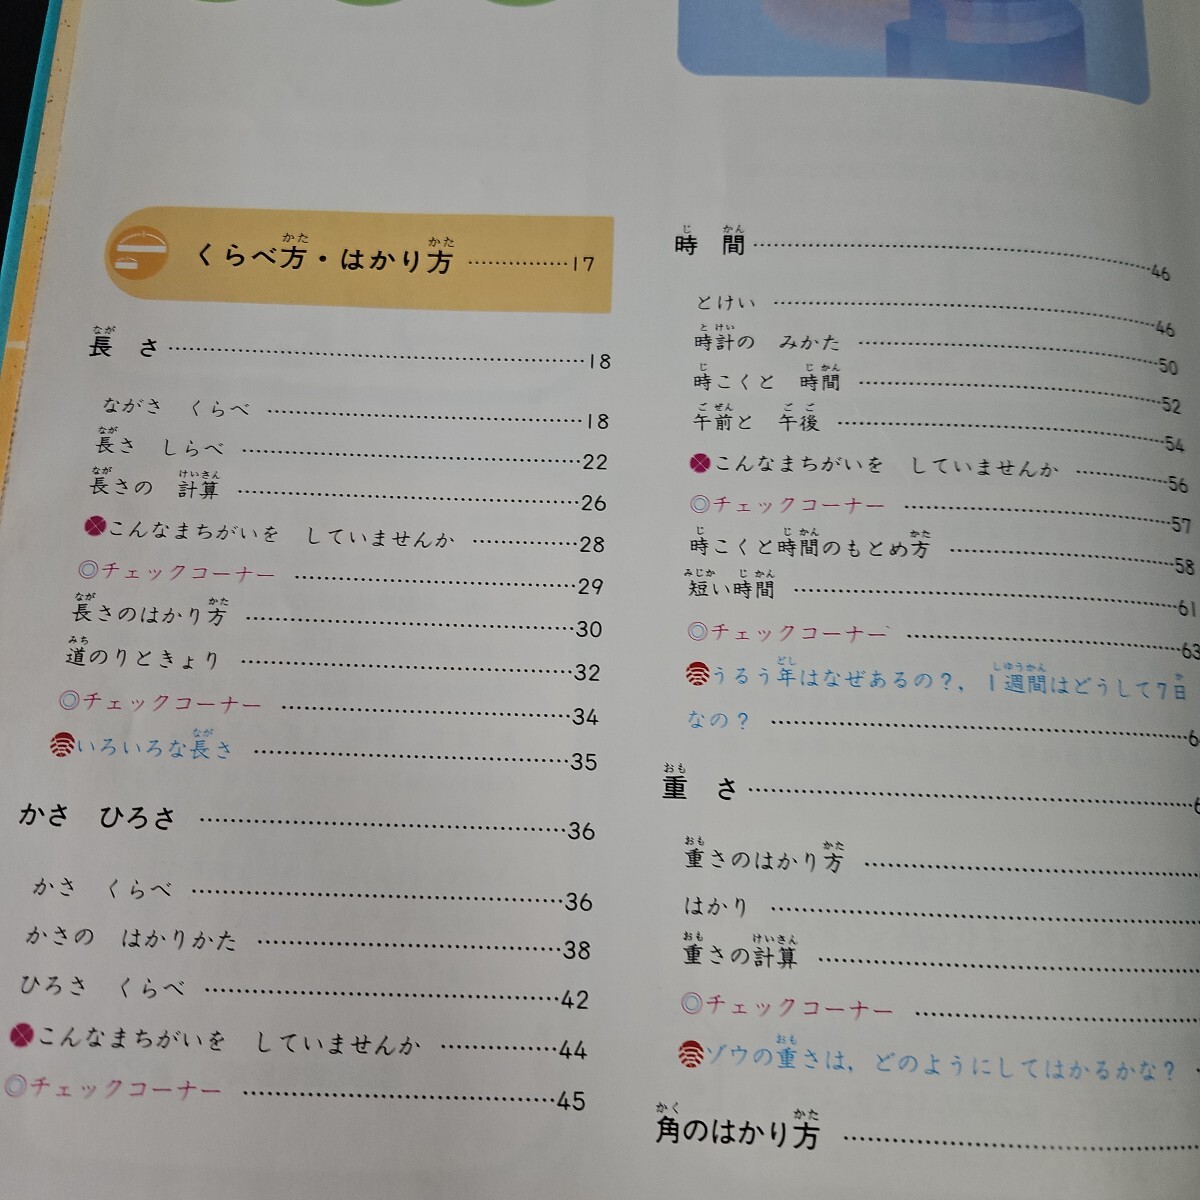 くらべ方・はかり方 ……………17
長さ ……………18
ながさ くらべ ……………18
長さ しらべ ……………22
長さの 計算 ……………26
こんなまちがいを していませんか ……………28
◎チェックコーナー ……………29
長さのはかり方 ……………30
道のりときょり ……………32
◎チェックコーナー ……………34
いろいろな長さ ……………35
かさ ひろさ ……………36
かさ くらべ ……………36
かさの はかりかた ……………38
ひろさ くらべ ……………42
こんなまちがいを していませんか ……………44
◎チェックコーナー ……………45
時間 ……………46
とけい ……………46
時計の みかた ……………50
時こくと 時間 ……………52
午前と 午後 ……………54
こんなまちがいを していませんか ……………56
◎チェックコーナー ……………57
時こくと時間のもとめ方 ……………58
短い時間 ……………61
◎チェックコーナー ……………63
うるう年はなぜあるの?, 1週間はどうして7日
なの? ……………
重さ ……………
重さのはかり方 ……………
はかり ……………
重さの計算 ……………
◎チェックコーナー ……………
ゾウの重さは, どのようにしてはかるかな?
角のはかり方 ……………